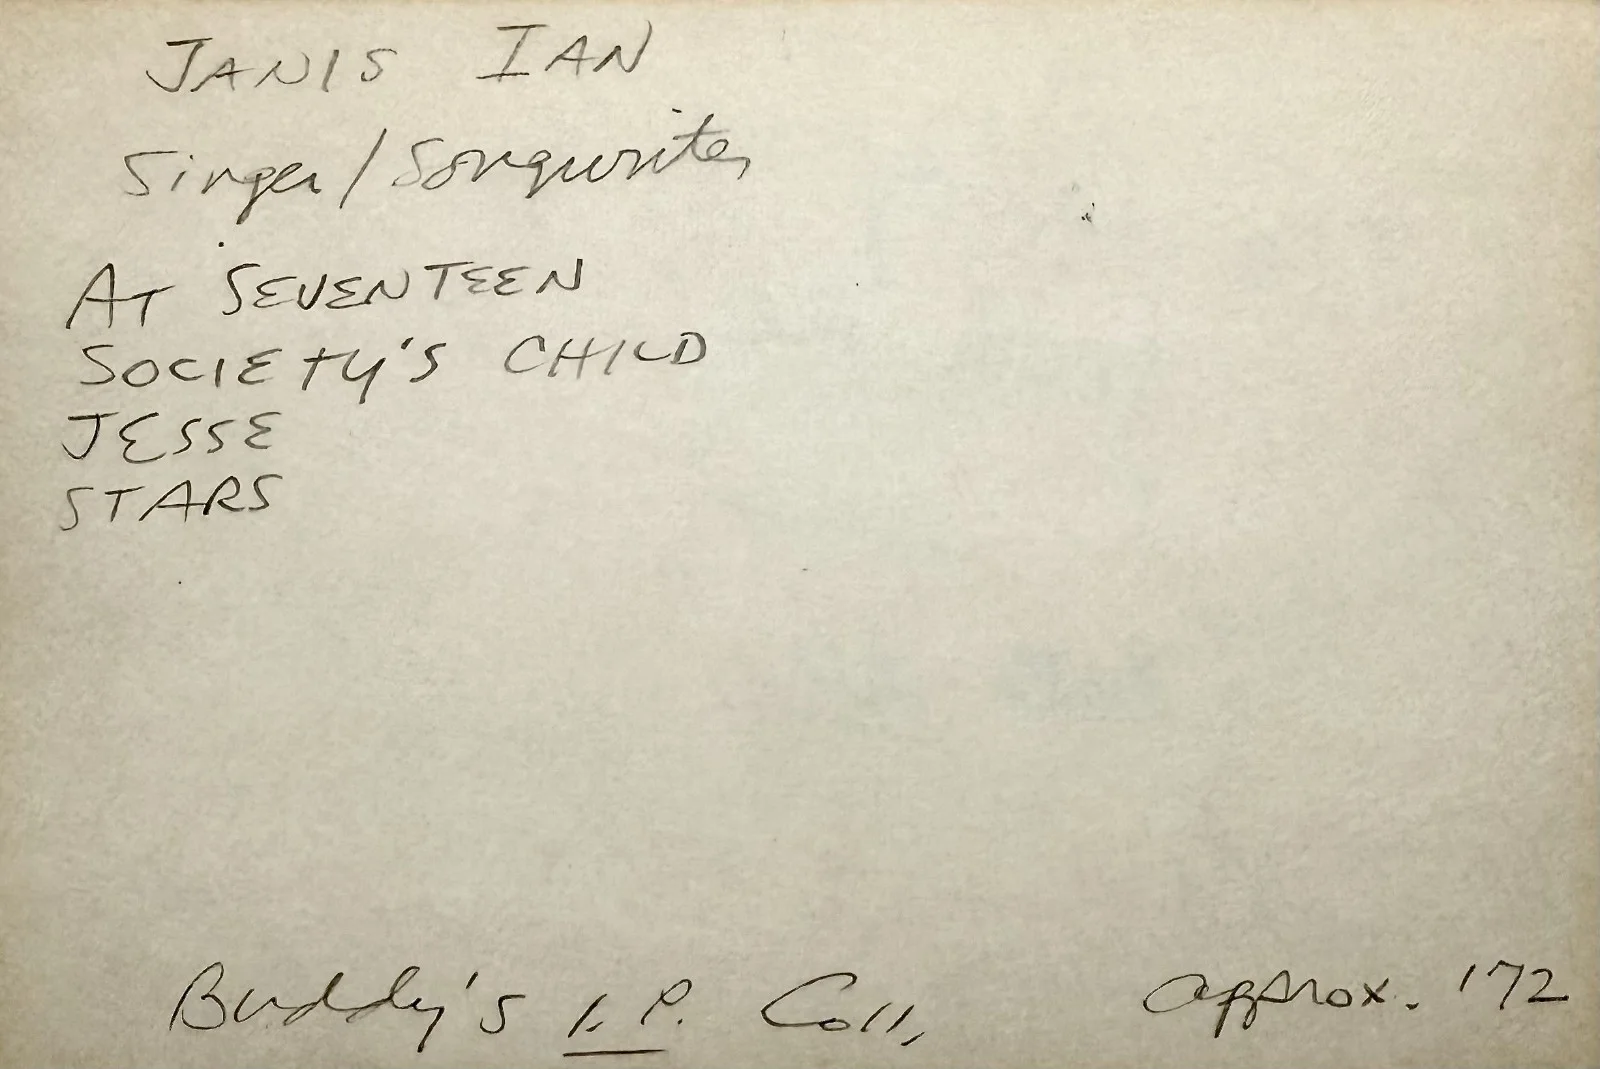 JANIS IAN
Singer/Songwriter
AT SEVENTEEN
SOCIETY'S CHILD
JESSE
STARS
Buddy's I.P. Coll, approx. '72